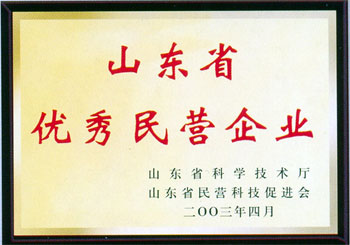 山东省
优秀民营企业
山东省科学技术厅
山东省民营科技促进会
二〇〇三年四月